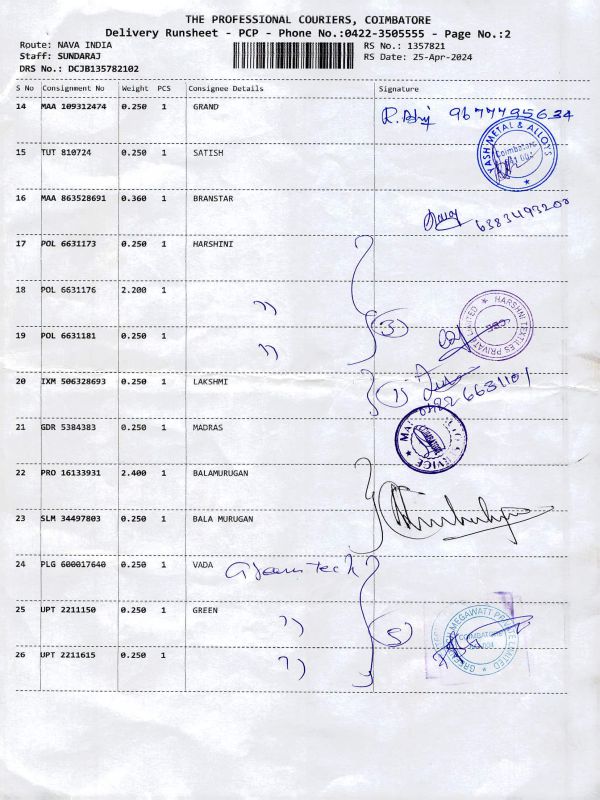 THE PROFESSIONAL COURIERS, COIMBATORE
Delivery Runsheet - PCP - Phone No.:0422-3505555 - Page No.:2
Route: NAVA INDIA
RS No.: 1357821
Staff: SUNDARAJ
RS Date: 25-Apr-2024
DRS No.: DCJB135782102
S No Consignment No Weight PCS Consignee Details Signature
14 MAA 109312474 0.250 1 GRAND
YASH METAL & ALLOYS
Coimbatore
15 TUT 810724 0.250 1 SATISH
16 MAA 863528691 0.360 1 BRANSTAR 6383493200
17 POL 6631173 0.250 1 HARSHINI
18 POL 6631176 2.200 1 ))
HARSHNI TEXTILES PRIVATE LIMITED
3
19 POL 6631181 0.250 1 ))
20 IXM 506328693 0.250 1 LAKSHMI 1 0422 6631101
21 GDR 5384383 0.250 1 MADRAS
COIMBATORE
SERVICE
22 PRO 16133931 2.400 1 BALAMURUGAN
23 SLM 34497803 0.250 1 BALA MURUGAN
24 PLG 600017640 0.250 1 VADA
25 UPT 2211150 0.250 1 GREEN ))
MEGAWATT PRIVATE LIMITED
COIMBATORE
26 UPT 2211615 0.250 1 ))